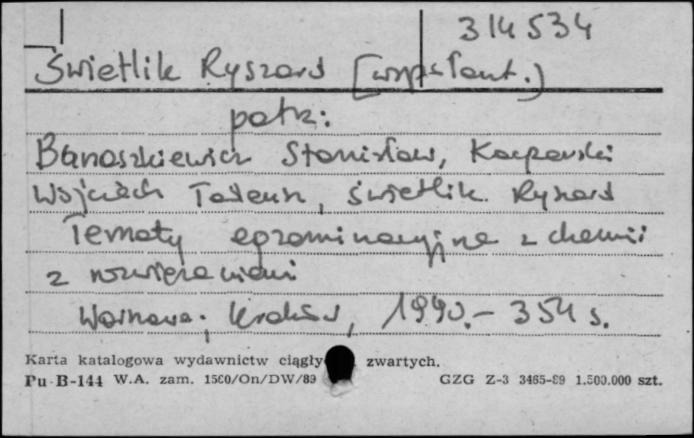 314534
Świetlik Ryszard [współaut.]
patrz:
Banaszkiewicz Stanisław, Kacperski
Wojciech Tadeusz, Świetlik Ryszard
Tematy egzaminacyjne z chemii
z rozwiązaniami
Warszawa; Kraków, 1990. - 354 s.
Karta katalogowa wydawnictw ciągły zwartych.
Pu B-144 W.A. zam. 1500/On/DW/89 GZG Z-3 3465-89 1.500.000 szt.